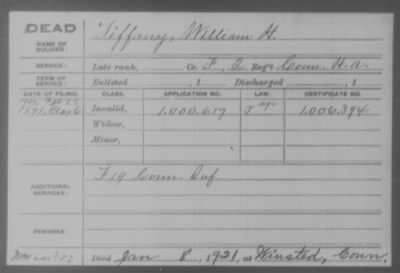 DEAD
NAME OF SOLDIER:
Tiffany, William H.
SERVICE:
Late rank, Co. F, 2 Reg't Conn. H. A.
TERM OF SERVICE:
Enlisted , 1 Discharged , 1
DATE OF FILING. CLASS. APPLICATION NO. LAW. CERTIFICATE NO.
1891, Invalid, 1.000.617 1.006.394
Widow,
Minor,
ADDITIONAL SERVICES:
F 19 Conn. Inf
REMARKS:
Died Jan 8, 1921, at Winsted, Conn,